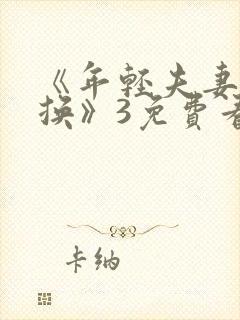 《年轻夫妻
换》3免費看
卡纳